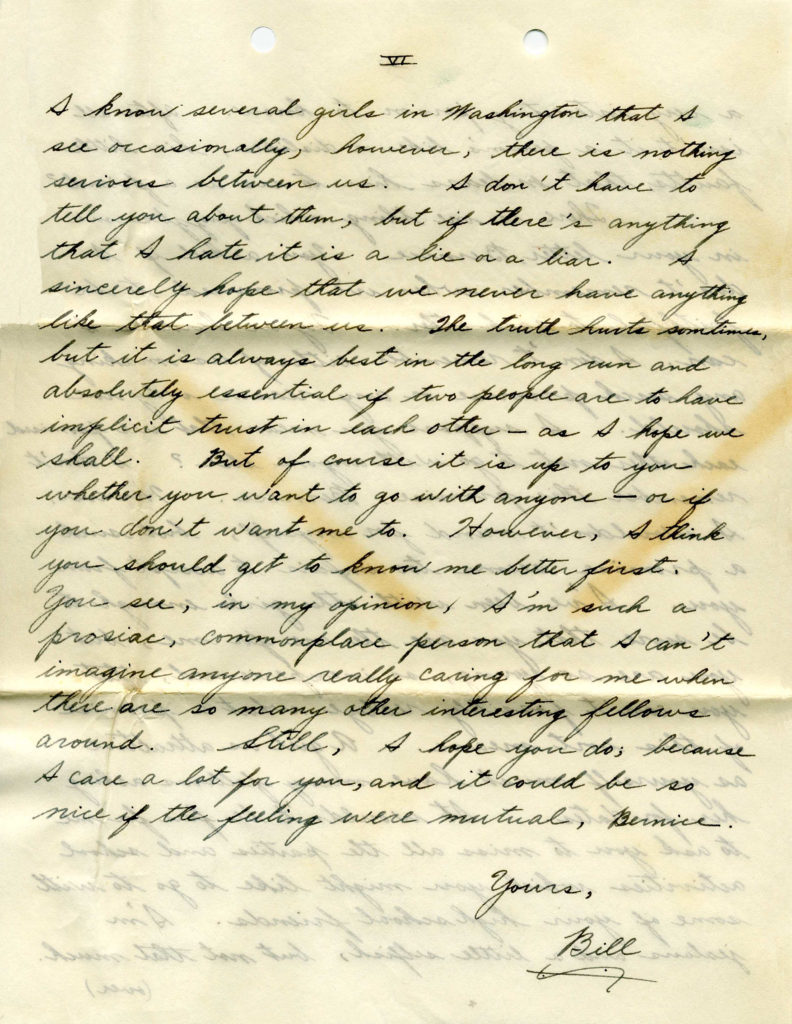 VI
I know several girls in Washington that I
see occasionally, however, there is nothing
serious between us. I don't have to
tell you about them, but if there's anything
that I hate it is a lie or a liar. I
sincerely hope that we never have anything
like that between us. The truth hurts somtimes,
but it is always best in the long run and
absolutely essential if two people are to have
implicit trust in each other — as I hope we
shall. But of course it is up to you
whether you want to go with anyone — or if
you don't want me to. However, I think
you should get to know me better first.
You see, in my opinion, I'm such a
prosiac, commonplace person that I can't
imagine anyone really caring for me when
there are so many other interesting fellows
around. Still, I hope you do; because
I care a lot for you, and it could be so
nice if the feeling were mutual, Bernice.
Yours,
Bill